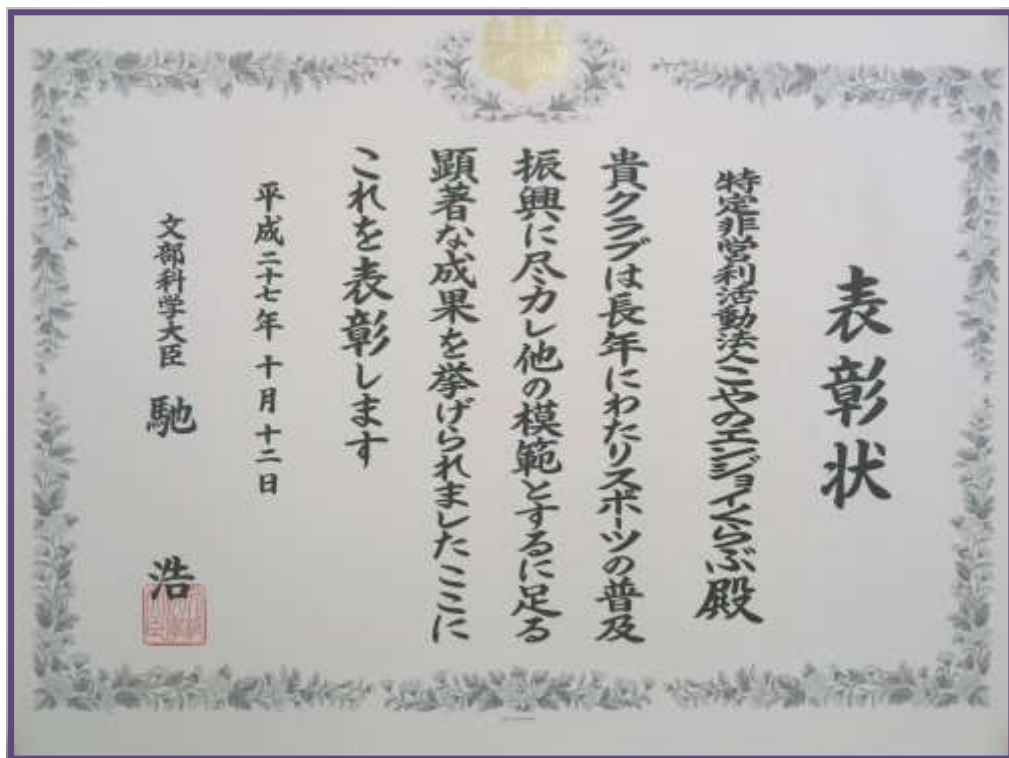 表彰状
特定非営利活動法人こやのエンジョイくらぶ殿
貴クラブは長年にわたりスポーツの普及
振興に尽力し他の模範とするに足る
顕著な成果を挙げられましたここに
これを表彰します
平成二十七年十月十二日
文部科学大臣 馳 浩